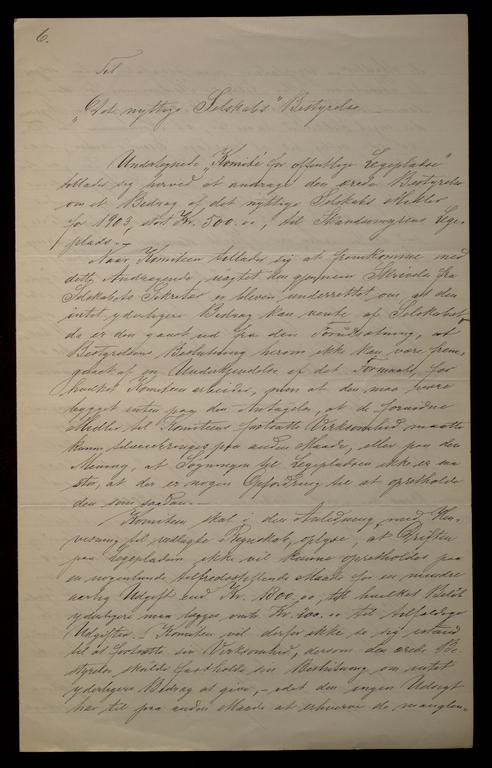 6.
Til
"Det nyttige Selskabs" Bestyrelse.
Undertegnede "Komité for offentlige Legepladse"
tillader sig herved at andrage den ærede Bestyrelse
om et Bedrag af det nyttige Selskabs Midler
for 1903, stort Kr. 500.00, til Skandsemyrens Lege-
plads.-
Naar Komiteen tillader sig at fremkomme med
dette Andragende, uagtet den gjennem Skrivelse fra
Selskabets Sekretær er bleven underrettet om, at den
intet yderligere Bedrag kan vente af Selskabet,
da er den gaaet ud fra den Forudsætning, at
Bestyrelsens Beslutning herom ikke kan være frem-
gaaet af en Underkjendelse af det Formaal, for
hvilket Komiteen arbeider, men at den maa være
bygget enten paa den Antagelse, at de fornødne
Midler til Komiteens fortsatte Virksomhed maatte
kunne tilveiebringes paa anden Maade, eller paa den
Mening, at Søgningen til Legepladsen ikke er saa
stor, at der er nogen Opfordring til at opretholde
den som saadan.-
Komiteen skal i den Anledning, med Hen-
visning til vedlagte Regnskab, oplyse, at Driften
paa Legepladsen ikke vil kunne opretholdes paa
en nogenlunde tilfredsstillende Maade for en mindre
aarlig Udgift end Kr. 1800.00, til hvilket Beløb
yderligere maa lægges omtr. Kr. 200.00 til tilfældige
Udgifter. Komiteen vil derfor ikke se sig istand
til at fortsætte sin Virksomhed, dersom den ærede Be-
styrelse skulde fastholde sin Beslutning om intet
yderligere Bedrag at give,- idet den ingen Udsigt
har til paa anden Maade at erhverve de manglen-